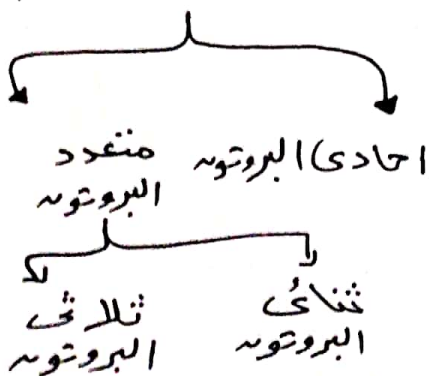 احادى البروتون
متعدد
البروتون
ثنائى
البروتون
ثلاثى
البروتون